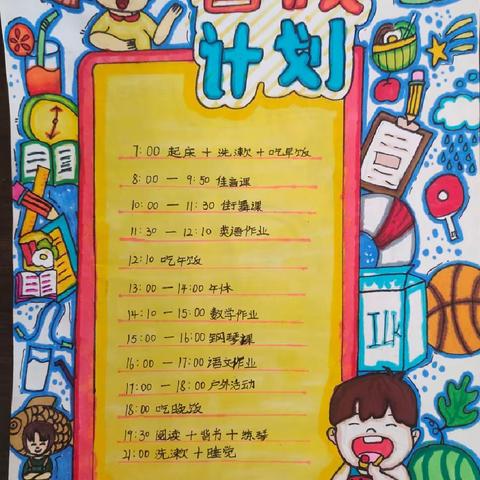 暑假
计划
7:00 起床 + 洗漱 + 吃早饭
8:00 — 9:50 佳音课
10:00 — 11:30 街舞课
11:30 — 12:10 英语作业
12:10 吃午饭
13:00 — 14:00 午休
14:10 — 15:00 数学作业
15:00 — 16:00 钢琴课
16:00 — 17:00 语文作业
17:00 — 18:00 户外活动
18:00 吃晚饭
19:30 阅读 + 背书 + 练琴
21:00 洗漱 + 睡觉